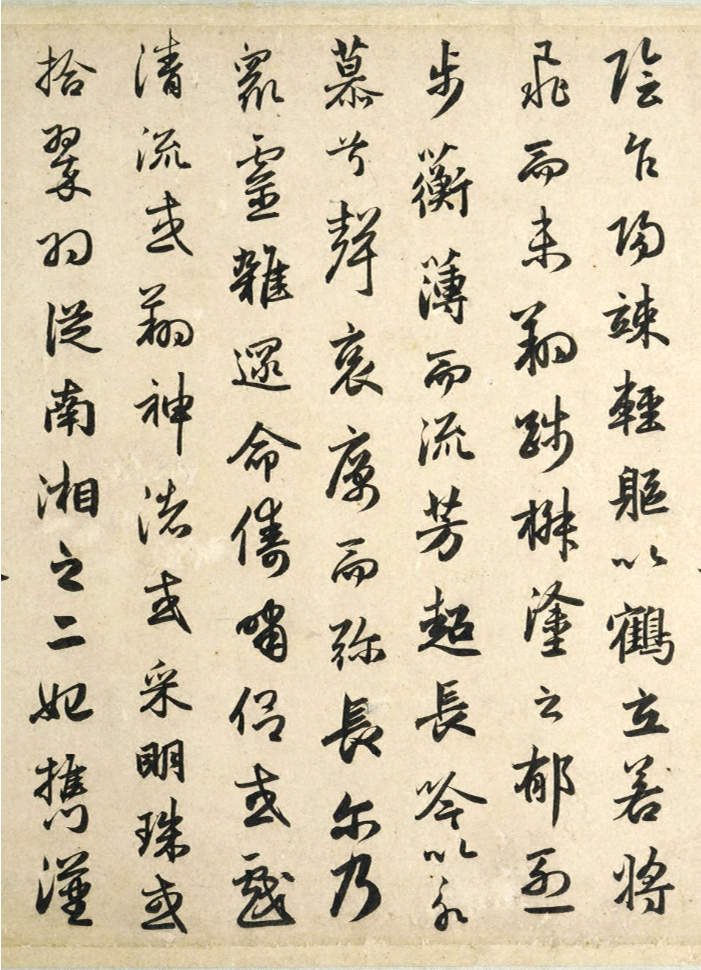 陰乍陽竦輕軀以鶴立若將
飛而未翔踐椒塗之郁烈
步蘅薄而流芳超長吟以永
慕兮聲哀厲而弥長尔乃
眾靈雜遝命儔嘯侶或戲
清流或翔神渚或采明珠或
拾翠羽從南湘之二妃攜漢